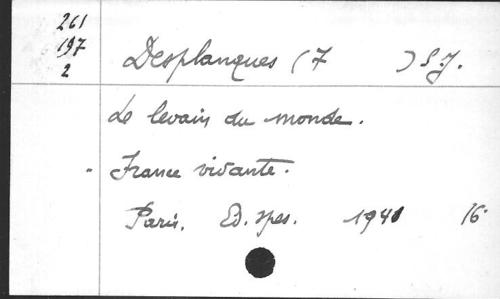 261
197
2
Desplanques (F ) S.J.
Le levain du monde.
France vivante.
Paris. Ed. Spes. 1941 16°